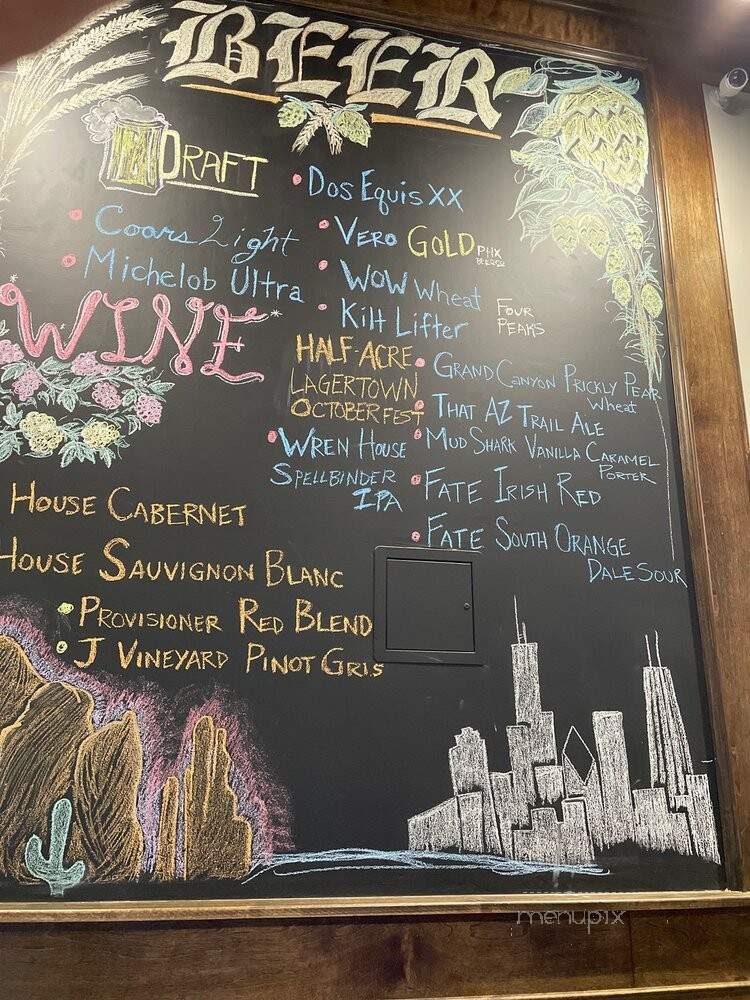 BEER
DRAFT
Coors Light
Michelob Ultra
Dos Equis XX
Vero GOLD PHX
BEERCO
WOW Wheat
Kilt Lifter
FOUR
PEAKS
HALF-ACRE
LAGERTOWN
OCTOBERFEST
WREN HOUSE
SPELLBINDER
IPA
GRAND CANYON PRICKLY PEAR
Wheat
THAT AZ TRAIL ALE
MUD SHARK VANILLA CARAMEL
PORTER
FATE IRISH RED
FATE SOUTH ORANGE
DALE SOUR
WINE
HOUSE CABERNET
HOUSE SAUVIGNON BLANC
PROVISIONER RED BLEND
J VINEYARD PINOT GRIS
menupix